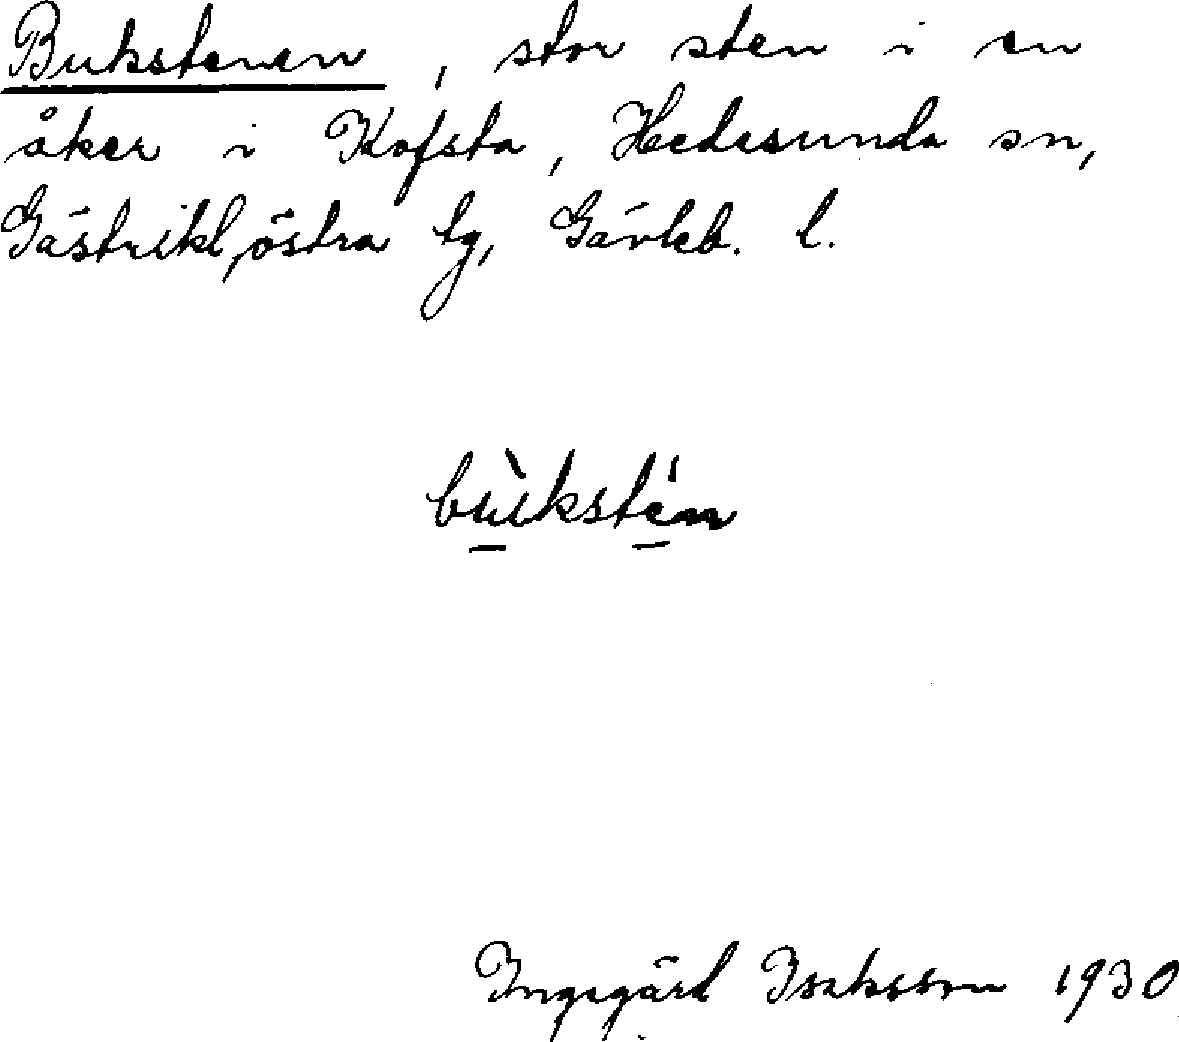 Bukstenen, stor sten i en
åker i Kofsta, Hedesunda sn,
Gästrikl. östra tg, Gävleb. l.
bu̱̍kste̱̍n
Ingegärd Isaksson 1930